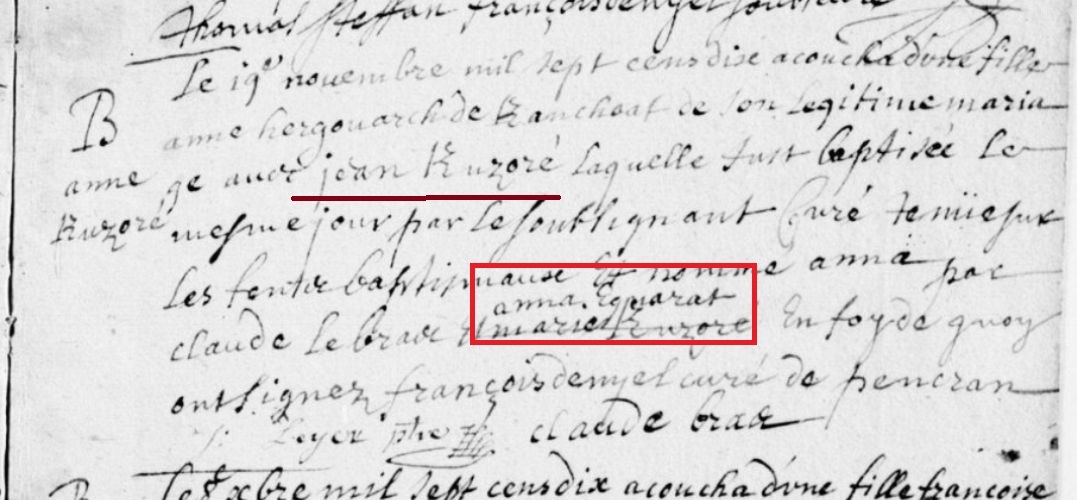 Thomas steffan françois denyel soubsigné
Le 19e novembre mil sept cens dix acoucha d'vne fille
B anne hergouarch de Kanchoat de son legitime maria
anne ge auec jean Kuzoré laquelle fust baptisée le
Kuzoré mesme jour par le soubsignant Curé tenüe sur
les fontz baptismaux et nommé anna par
anna
claude le bras et marie Kuzoré En foy de quoy
ont signez françois denyel curé de pencran
claude bras
Le 8 xbre mil sept cens dix acoucha d'vne fille françoise